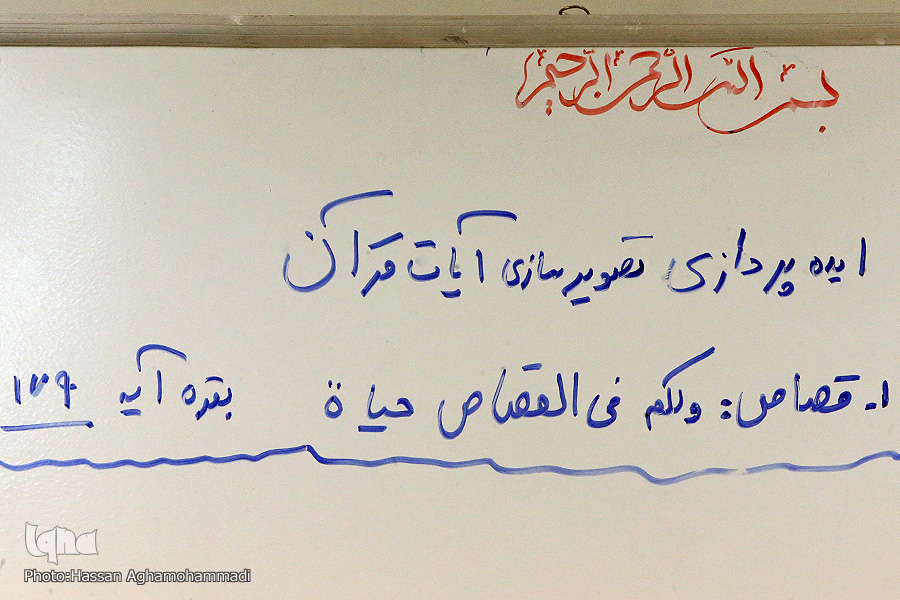 بسم الله الرحمن الرحیم
ایده پردازی تصویر سازی آیات قرآن
۱- قصاص: ولکم فی القصاص حیاة بقره آیه ۱۷۹
Iqna
Photo:Hassan Aghamohammadi